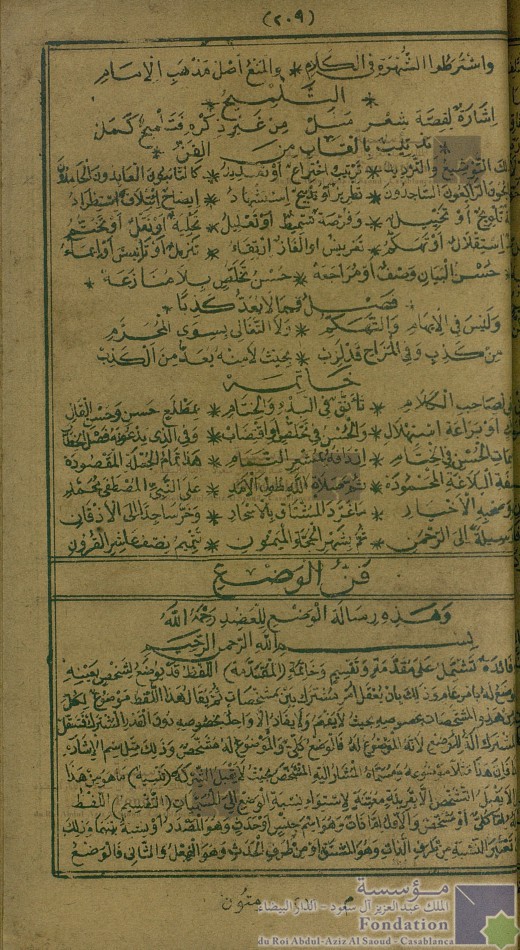 (٢٠٩)
واشترطوا الشهرة في الكلام * والمنع أصل مذهب الإمام
* التلميح *
إشارة لقصة شعر مثل * من غير ذكره فتلميح كمل
* تذنيب بألقاب من الفن *
التوشيع والترديد * ترتيب اختراع أو تعديد * كالتائبون العابدون الحامدون
الراكعون الساجدون * تطريز أو تدبيج استشهاد * إيضاح ائتلاف استطراد
تلويح أو تخييل * وفرصة تسميط أو تعليل * تحلية أو نقل أو تختم
استقلال أو تهكم * تعريض أو إلغاز ارتقاء * تنزيل أو تأنيس أو إيماء
* حسن البيان وصف أو مراجعه * حسن تخلص بلا منازعة *
فصل فيما لا يعد كذبا
وليس في الإيهام والتهكم * ولا التغالي بسوى المحرم
من كذب وفي المزاح قد لزب * بحيث لا منه يعد من الكذب
خاتمة
لصاحب الكلام * تأنق في البدء والختام * بمطلع حسن وحسن القال
أو براعة استهلال * والحسن في تخلص أو اقتضاب * وفي الذي يدعونه فصل الخطاب
الحسن في الختام * إردافه بمشعر التمام * هذا تمام الجملة المقصودة
البلاغة المحمودة * ثم صلاة الله طول الأمد * على النبي المصطفى محمد
وصحبه الأخيار * ما غرد المشتاق بالأسحار * وخر ساجدا إلى الأذقان
وسيلة إلى الرحمن * تم بشهر الحجة الميمون * تتميم نصف عاشر القرون
فن الوضع
وهذه رسالة الوضع للعضد رحمه الله
بسم الله الرحمن الرحيم
فائدة تشتمل على مقدمة وتقسيم وخاتمة (المقدمة) اللفظ قد يوضع لشخص بعينه
وضع له بأمر عام وذلك بأن يعقل أمر مشترك بين مشخصات ثم يقال هذا اللفظ موضوع لكل
من هذه المشخصات بخصوصه بحيث لا يفهم ولا يفاد إلا واحد بخصوصه دون القدر المشترك فتعقل
المشترك آلة للوضع لا أنه الموضوع له فالوضع كلي والموضوع له مشخص وذلك مثل اسم الإشارة
فإن هذا مثلا موضوعه ومسماه المشار إليه المشخص بحيث لا يقبل الشركة (تنبيه) ما هو من هذا
لا يفيد التشخص إلا بقرينة معينة لاستواء نسبة الوضع إلى المسميات (التقسيم) اللفظ
مدلوله كلي أو مشخص والأول إما ذات وهو اسم جنس أو حدث وهو المصدر أو نسبة بينهما وذلك
تعتبر النسبة من طرف الذات وهو المشتق أو من طرف الحدث وهو الفعل والثاني فالوضع
متون
مؤسسة
الملك عبد العزيز آل سعود - الدار البيضاء
Fondation
du Roi Abdul-Aziz Al Saoud - Casablanca